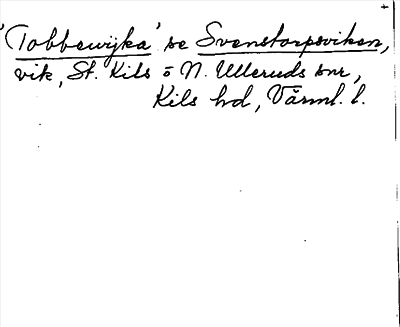 'Tobbewijka' se Svenstorpsviken,
vik, St. Kils o N. Ulleruds snr,
Kils hd, Värml. l.